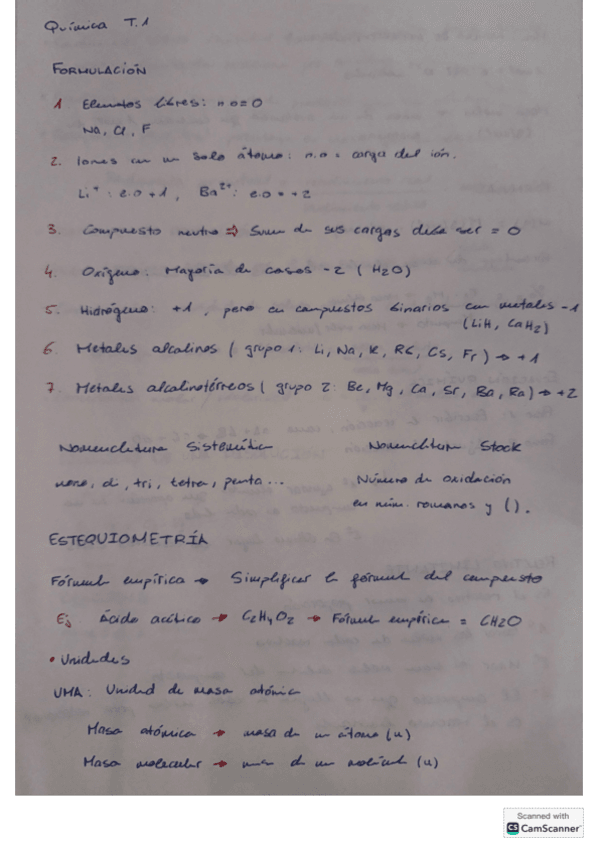 Química T.1
FORMULACIÓN
1 Elementos libres: n.o=0
Na, Cl, F
2. Iones en un solo átomo: n.o = carga del ión.
Li⁺: e.o +1, Ba²⁺: e.o = +2
3. Compuesto neutro ⇒ Suma de sus cargas debe ser = 0
4. Oxígeno: Mayoría de casos -2 (H₂O)
5. Hidrógeno: +1, pero en compuestos binarios con metales -1
(LiH, CaH₂)
6. Metales alcalinos (grupo 1: Li, Na, K, Rb, Cs, Fr) → +1
7. Metales alcalinotérreos (grupo 2: Be, Mg, Ca, Sr, Ba, Ra) → +2
Nomenclatura Sistemática Nomenclatura Stock
mono, di, tri, tetra, penta... Número de oxidación
en núm. romanos y ().
ESTEQUIOMETRÍA
Fórmula empírica → Simplificar la fórmula del compuesto
Ej Ácido acético → C₂H₄O₂ → Fórmula empírica = CH2O
• Unidades
UMA: Unidad de masa atómica
Masa atómica → masa de un átomo (u)
Masa molecular → masa de una molécula (u)
Scanned with
CS CamScanner